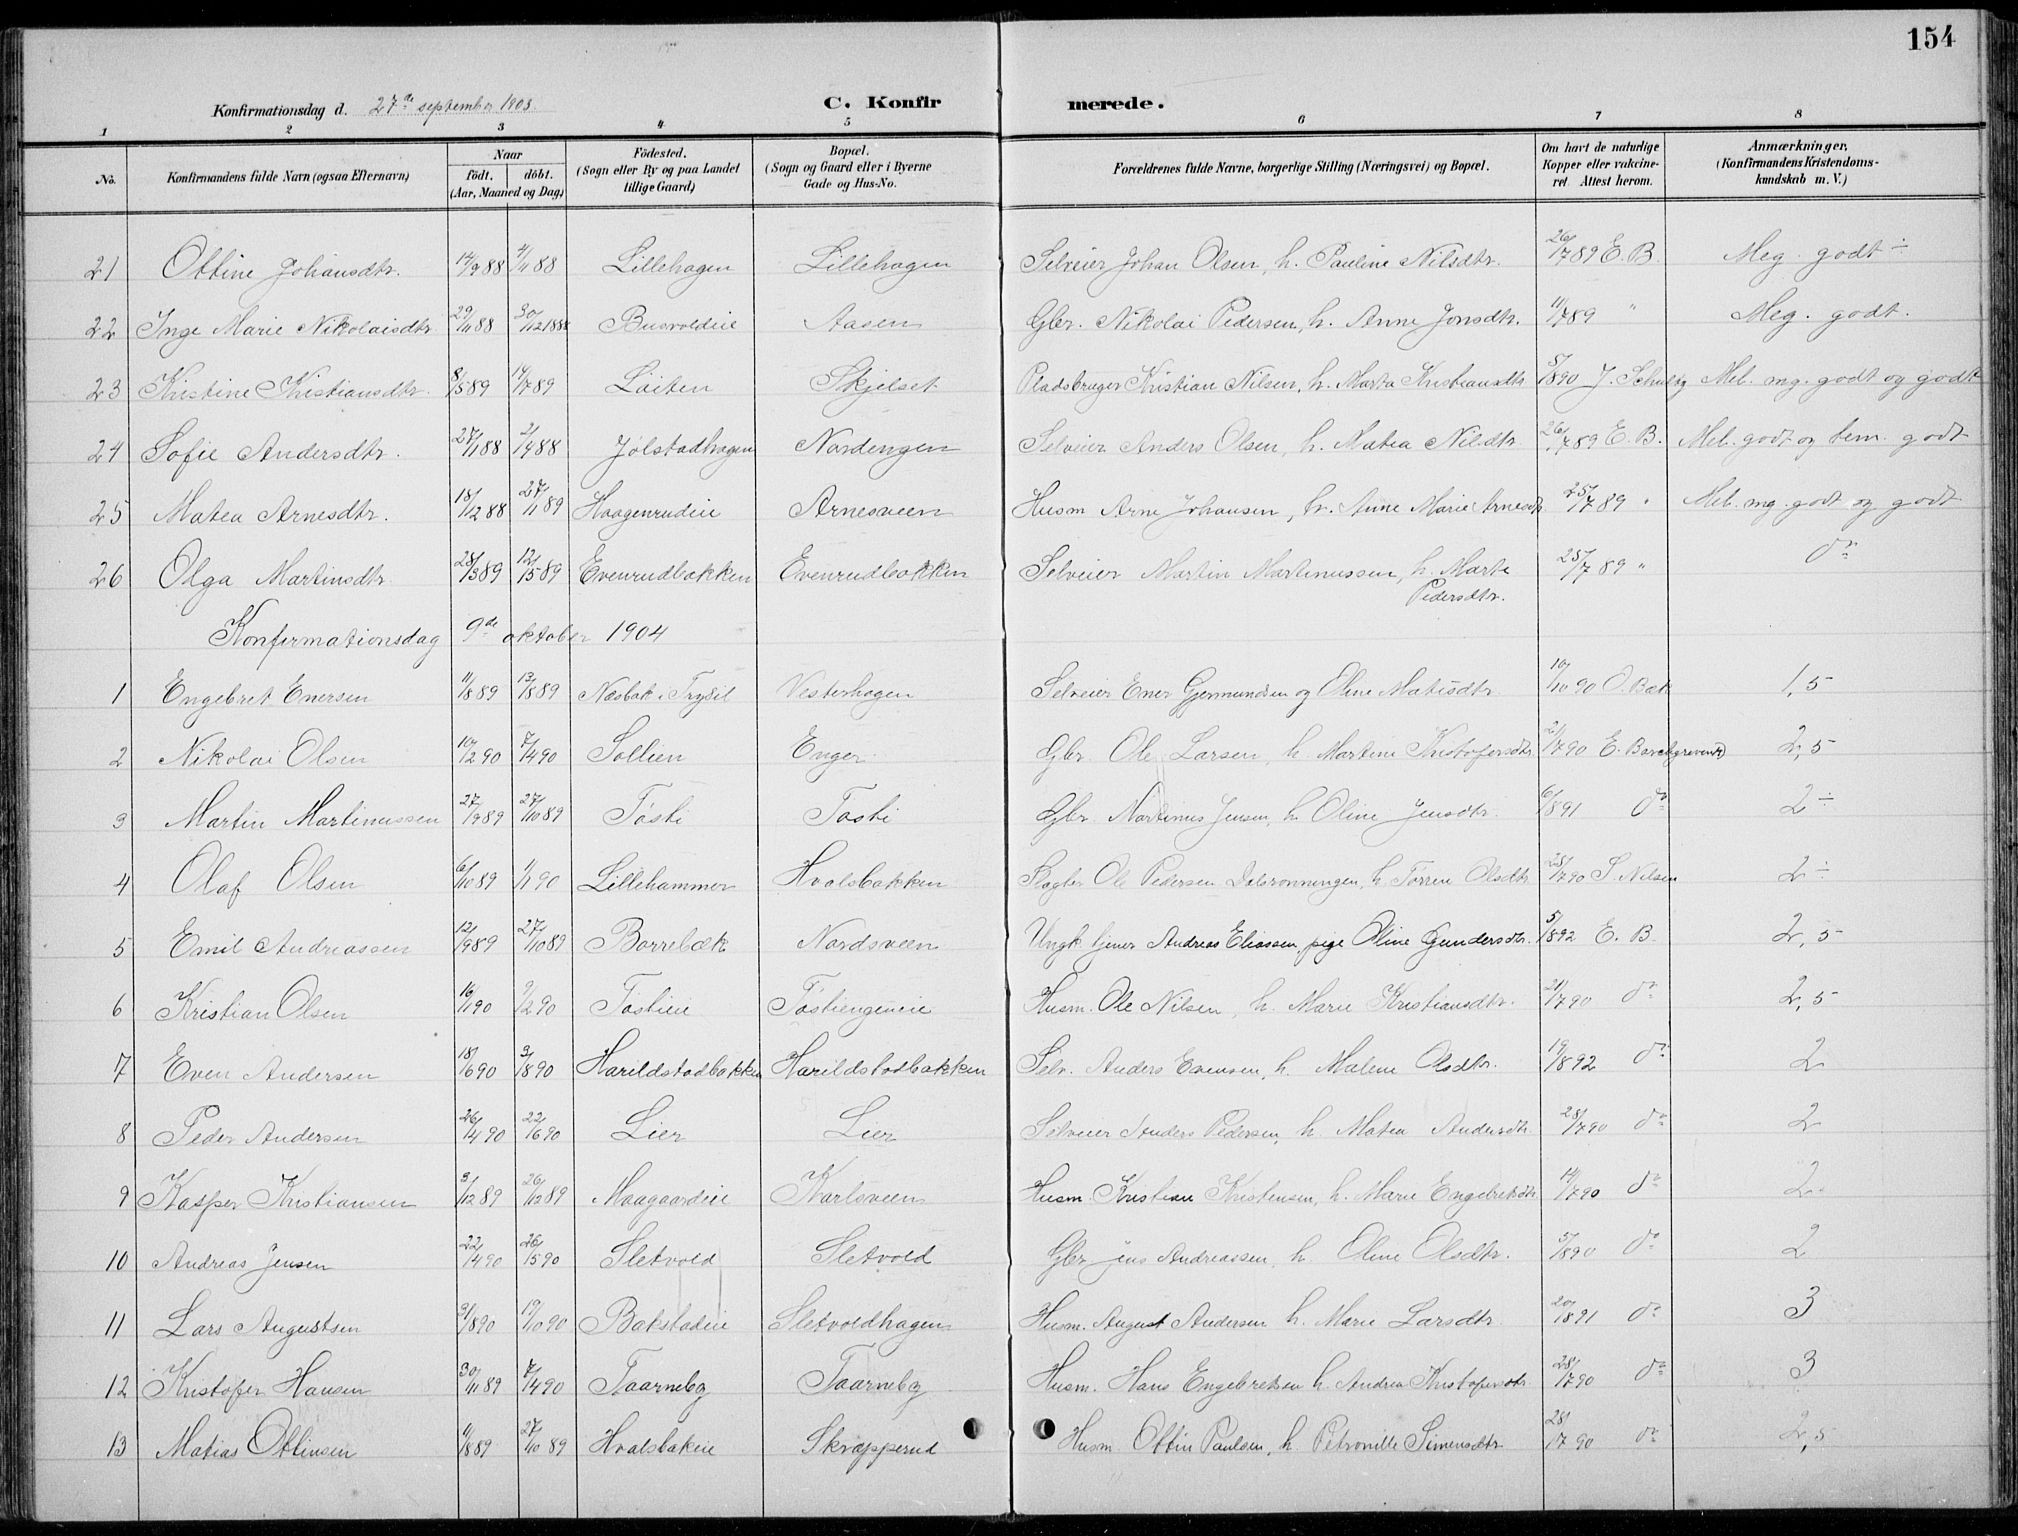 154
Konfirmationsdag d. 27de september 1903. C. Konfirmerede.
1 2 3 4 5 6 7 8
No. Konfirmandens fulde Navn (ogsaa Efternavn) Naar født. døbt. (Aar, Maaned og Dag) Fødested. (Sogn eller By og paa Landet tillige Gaard) Bopæl. (Sogn og Gaard eller i Byerne Gade og Hus-No. Forældrenes fulde Navne, borgerlige Stilling (Næringsvei) og Bopæl. Om havt de naturlige Kopper eller vakcineret. Attest herom. Anmærkninger, (Konfirmandens Kristendomskundskab m. V.)
21 Ottine Johansdtr. 14/9 88 4/11 88 Lillehagen Lillehagen Selveier Johan Olsen, h. Pauline Nilsdtr. 26/7 89 E. B. Meg. godt ÷
22 Inge Marie Nikolaisdtr. 29/11 88 30/12 1888 Busvoldeie Aasen Gbr. Nikolai Pedersen, h. Anne Jonsdtr. 11/7 89 " Meg. godt.
23 Kristine Kristiansdtr. 8/5 89 14/7 89 Løiten Skjelset Pladsbruger Kristian Nilsen, h. Marta Kristiansdtr. 5/8 90 J. Mel. mg. godt og godt
24 Sofie Andersdtr. 27/1 88 2/4 88 Jølstadhagen Nordengen Selveier Anders Olsen, h. Matea Nilsdtr. 26/7 89 E. B. Mel. godt og tem. godt
25 Matea Arnesdtr. 18/12 88 27/1 89 Haagenrudeie Arnesveen Husm. Arne Johansen, h. Anne Marie Arnesdtr. 25/7 89 " Mel. mg. godt og godt
26 Olga Martinsdtr. 28/3 89 12/5 89 Evenrudbakken Evenrudbakken Selveier Martin Martinussen, h. Marte Pedersdtr. 25/7 89 " do
Konfirmationsdag 9de oktober 1904
1 Engebret Enersen 11/8 89 13/8 89 Næsbak, Trysil Vesterhagen Selveier Ener Gjermundsen og Oline Matisdtr. 10/10 90 O. Bak 1,5
2 Nikolai Olsen 10/2 90 7/4 90 Sollien Enger Gbr. Ole Larsen, h. Martine Kristofersdtr. 21/7 90 E. Borchgrevink 2,5
3 Martin Martinussen 27/9 89 27/10 89 Tøsti Tøsti Gbr. Martinus Jensen, h. Oline Jensdtr. 6/8 91 do 2 ÷
4 Olaf Olsen 6/10 89 1/1 90 Lillehammer Hvalsbakken Slagter Ole Pedersen Dalsrønningen, h. Torren Olsdtr. 28/7 90 S. Nilsen 2 ÷
5 Emil Andreassen 12/9 89 27/10 89 Borrebæk Nordsveen Ungk. tjener Andreas Eliassen, pige Oline Gundersdtr. 5/8 92 E. B. 2,5
6 Kristian Olsen 16/1 90 9/2 90 Tøstieie Tøstiengeneie Husm. Ole Nilsen, h. Marie Kristiansdtr. 21/7 90 do 2,5
7 Even Andersen 18/6 90 3/8 90 Harildstadbakken Harildstadbakken Selv. Anders Evensen, h. Malene Olsdtr. 19/8 92 do 2
8 Peder Andersen 26/4 90 22/6 90 Lier Lier Selveier Anders Pedersen, h. Matea Andersdtr. 28/7 90 do 2
9 Kasper Kristiansen 3/12 89 26/12 89 Maagaardeie Karlsveen Husm. Kristian Kristensen, h. Marie Engebretsdtr. 14/7 90 do 2
10 Andreas Jensen 22/4 90 26/5 90 Sletvold Sletvold Gbr. Jens Andreassen, h. Oline Olsdtr. 5/8 90 do 2
11 Lars Augustsen 31/8 90 19/10 90 Bakstadeie Sletvoldhagen Husm. August Andersen h. Marie Larsdtr. 20/8 91 do 3
12 Kristofer Hansen 30/11 89 7/4 90 Taarneby Taarneby Husm. Hans Engebretsen h. Andrea Kristofersdtr. 28/7 90 do 3
13 Matias Ottinsen 9/8 89 27/10 89 Hvalsbakeie Skræpperud Husm. Ottin Paulsen, h. Petronille Simensdtr. 28/7 90 do 2,5